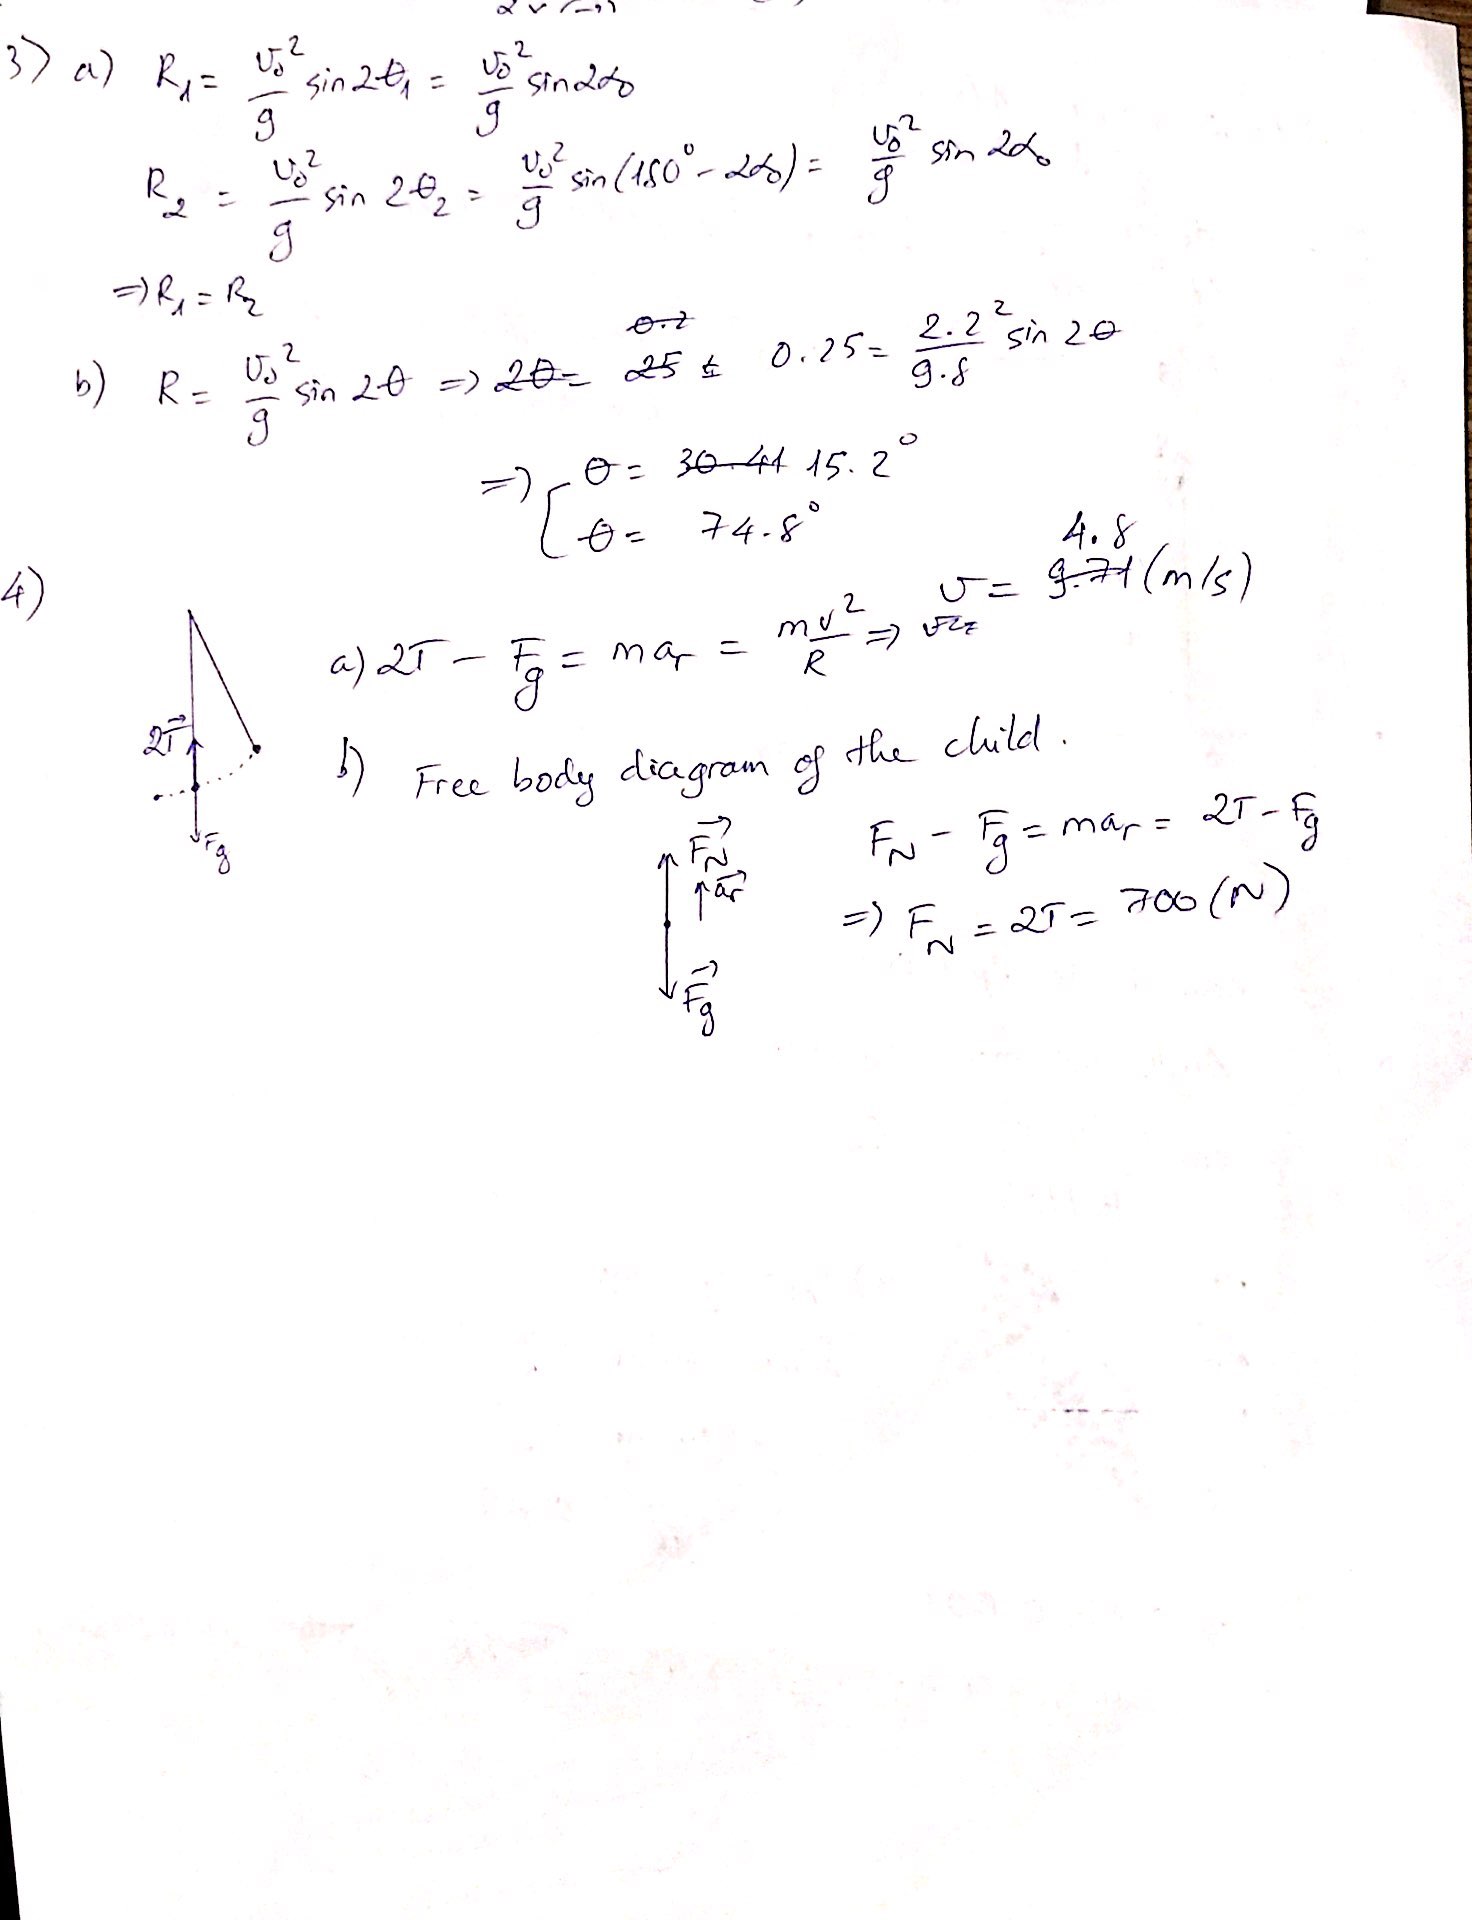 3) a) R₁ = v₀²/g sin2θ₁ = v₀²/g sin2α₀
R₂ = v₀²/g sin 2θ₂ = v₀²/g sin(180° - 2α₀) = v₀²/g sin 2α₀
⇒ R₁ = R₂
b) R = v₀²/g sin 2θ ⇒ 0.25 = 2.2²/9.8 sin 2θ
⇒ [ θ = 15.2°
θ = 74.8°
4)
a) 2T - Fg = mar = mv²/R ⇒ v = 4.8 (m/s)
2T⃗
Fg
b) Free body diagram of the child.
F⃗N
a⃗r
F⃗g
FN - Fg = mar = 2T - Fg
⇒ FN = 2T = 700 (N)